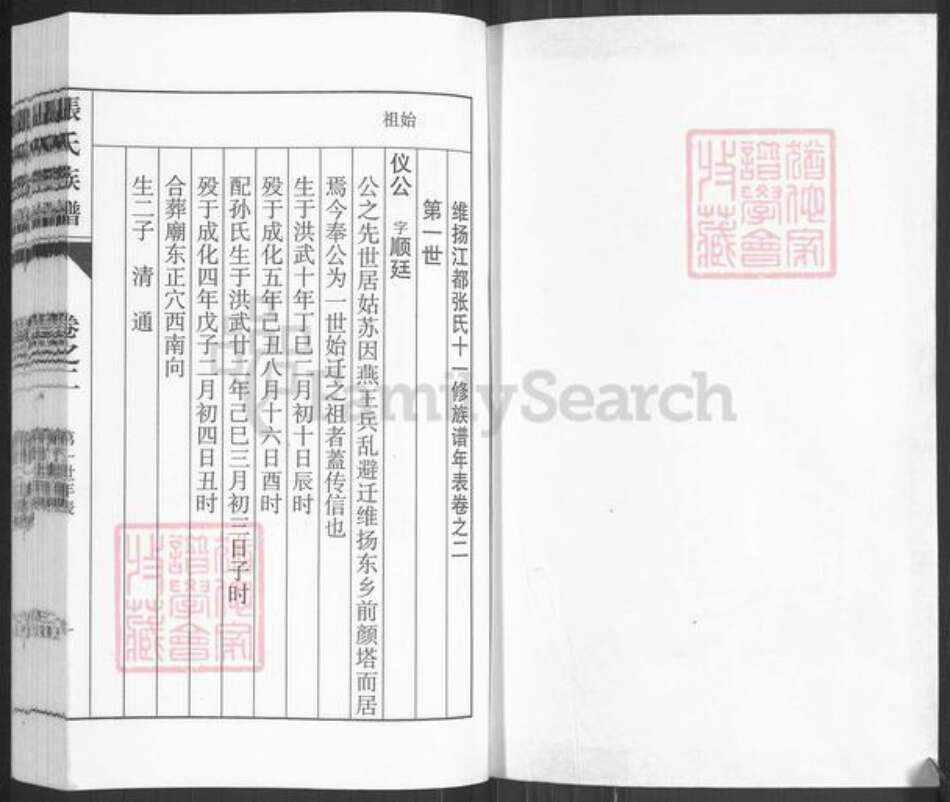 维扬江都张氏十一修族谱年表卷之二
第一世
始祖
仪公 字顺廷
公之先世居姑苏因燕王兵乱避迁维扬东乡前颜塔而居
焉今奉公为一世始迁之祖者蓋传信也
生于洪武十年丁巳二月初十日辰时
殁于成化五年己丑八月十六日酉时
配孙氏生于洪武廿二年己巳三月初三日子时
殁于成化四年戊子二月初四日丑时
合葬廟东正穴西南向
生二子 清 通
張氏族譜
卷之二
第一世年表
一
猶他家
譜學會
收藏
猶他家
譜學會
收藏
FamilySearch